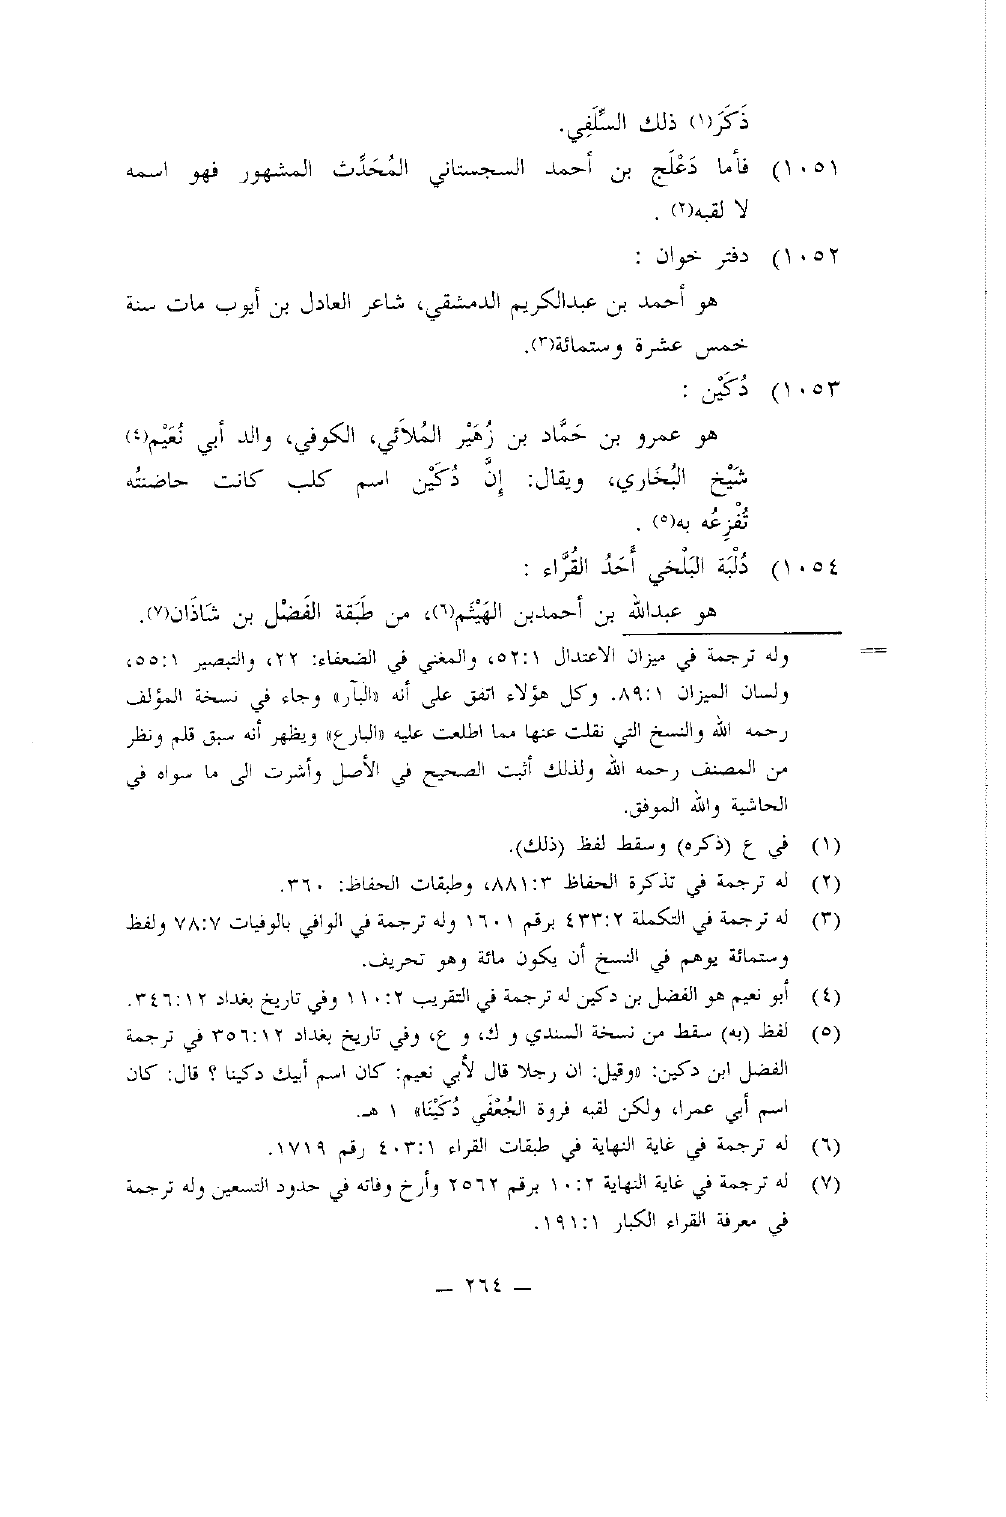 ذَكَرَ(١) ذلك السِّلَفِي.
١٠٥١) فأما دَعْلَج بن أحمد السجستاني المُحَدِّث المشهور فهو اسمه
لا لقبه(٢) .
١٠٥٢) دفتر خوان :
هو أحمد بن عبدالكريم الدمشقي، شاعر العادل بن أيوب مات سنة
خمس عشرة وستمائة(٣).
١٠٥٣) دُكَيْن :
هو عمرو بن حَمَّاد بن زُهَيْر المُلاَئي، الكوفي، والد أبي نُعَيْم(٤)
شَيْخ البُخَاري، ويقال: إِنَّ دُكَيْن اسم كلب كانت حاضنتُه
تُفْزِعُه به(٥) .
١٠٥٤) دُلْبَة البَلْخي أَحَدُ القُرَّاء :
هو عبدالله بن أحمدبن الهَيْثَم(٦)، من طَبَقة الفَضْل بن شَاذَان(٧).
== وله ترجمة في ميزان الاعتدال ٥٢:١، والمغني في الضعفاء: ٢٢، والتبصير ٥٥:١،
ولسان الميزان ٨٩:١. وكل هؤلاء اتفق على أنه «البآر» وجاء في نسخة المؤلف
رحمه الله والنسخ التي نقلت عنها مما اطلعت عليه «البارع» ويظهر أنه سبق قلم ونظر
من المصنف رحمه الله ولذلك أثبت الصحيح في الأصل وأشرت الى ما سواه في
الحاشية والله الموفق.
(١) في ع (ذكره) وسقط لفظ (ذلك).
(٢) له ترجمة في تذكرة الحفاظ ٨٨١:٣، وطبقات الحفاظ: ٣٦٠.
(٣) له ترجمة في التكملة ٤٣٣:٢ برقم ١٦٠١ وله ترجمة في الوافي بالوفيات ٧٨:٧ ولفظ
وستمائة يوهم في النسخ أن يكون مائة وهو تحريف.
(٤) أبو نعيم هو الفضل بن دكين له ترجمة في التقريب ١١٠:٢ وفي تاريخ بغداد ٣٤٦:١٢.
(٥) لفظ (به) سقط من نسخة السندي و ك، و ع، وفي تاريخ بغداد ٣٥٦:١٢ في ترجمة
الفضل ابن دكين: «وقيل: ان رجلا قال لأبي نعيم: كان اسم أبيك دكينا ؟ قال: كان
اسم أبي عمرا، ولكن لقبه فروة الجُعْفَي دُكَيْنَا» ١ هـ.
(٦) له ترجمة في غاية النهاية في طبقات القراء ٤٠٣:١ رقم ١٧١٩.
(٧) له ترجمة في غاية النهاية ١٠:٢ برقم ٢٥٦٢ وأرخ وفاته في حدود التسعين وله ترجمة
في معرفة القراء الكبار ١٩١:١.
— ٢٦٤ —